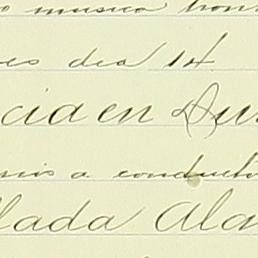 o musica hon
es dia 14
cia en Du
rios a conducto
llada Ala